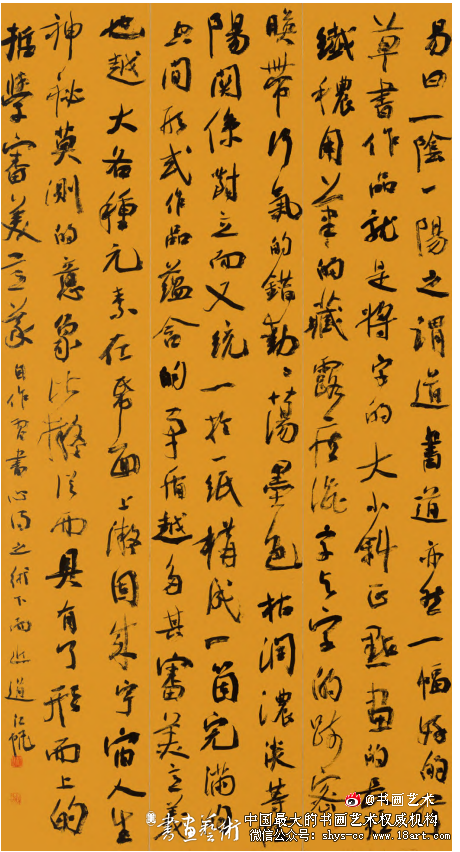 易曰一陰一陽之謂道書道亦然一幅好的
草書作品就是將字的大小斜正點畫的
纖穠用筆的藏露字與字的疏密
帶行氣的錯動墨色枯潤濃淡等
陽関係對立而又統一於一紙構成一箇完滿的
空间形式作品蕴含的矛盾越多其審美意義
也越大各種元素在紙面上凝固成宇宙人生
神秘莫測的意象從而具有了形而上的
哲學審美意義 自作習書心得之
@书画艺术
書畫藝術
中国最大的书画艺术权威机构
微信公众号：shys-cc www.18art.com